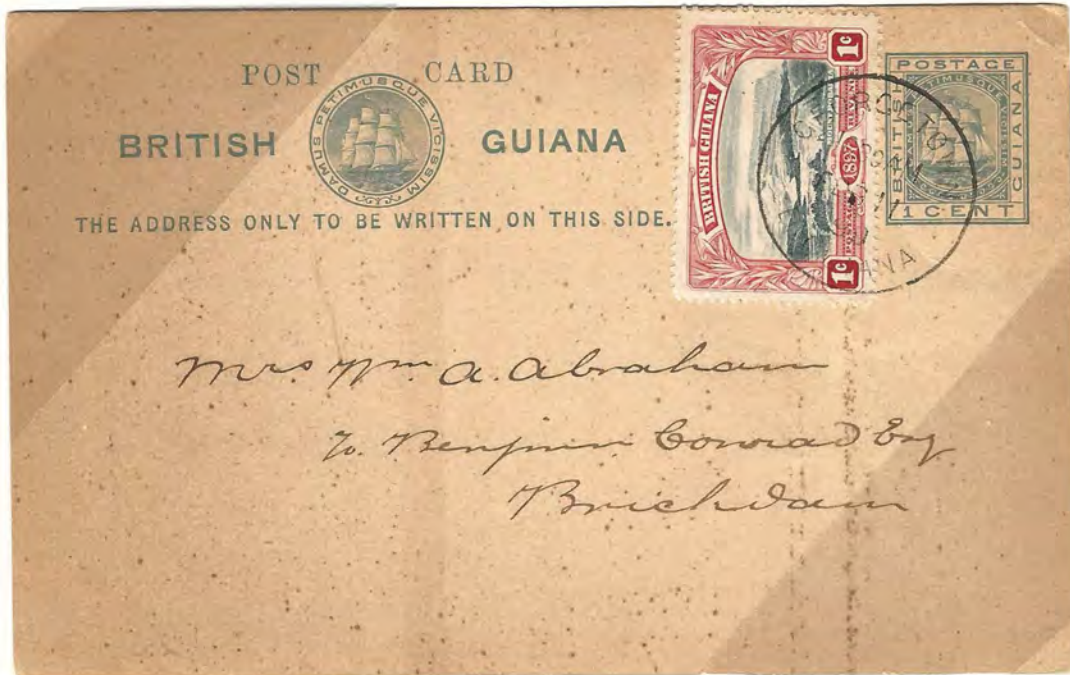 POST CARD
BRITISH GUIANA
DAMUS PETIMUSQUE VICISSIM
THE ADDRESS ONLY TO BE WRITTEN ON THIS SIDE.
BRITISH GUIANA
1c
1c
POSTAGE
1897
REVENUE
POSTAGE
BRITISH
GUIANA
1 CENT
Mrs Wm A. Abraham
Benjmin Conrad Esq
Brickdam